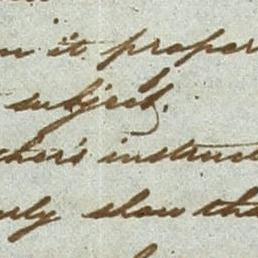 it proper
subject.
ther's instruct
rly slow tha